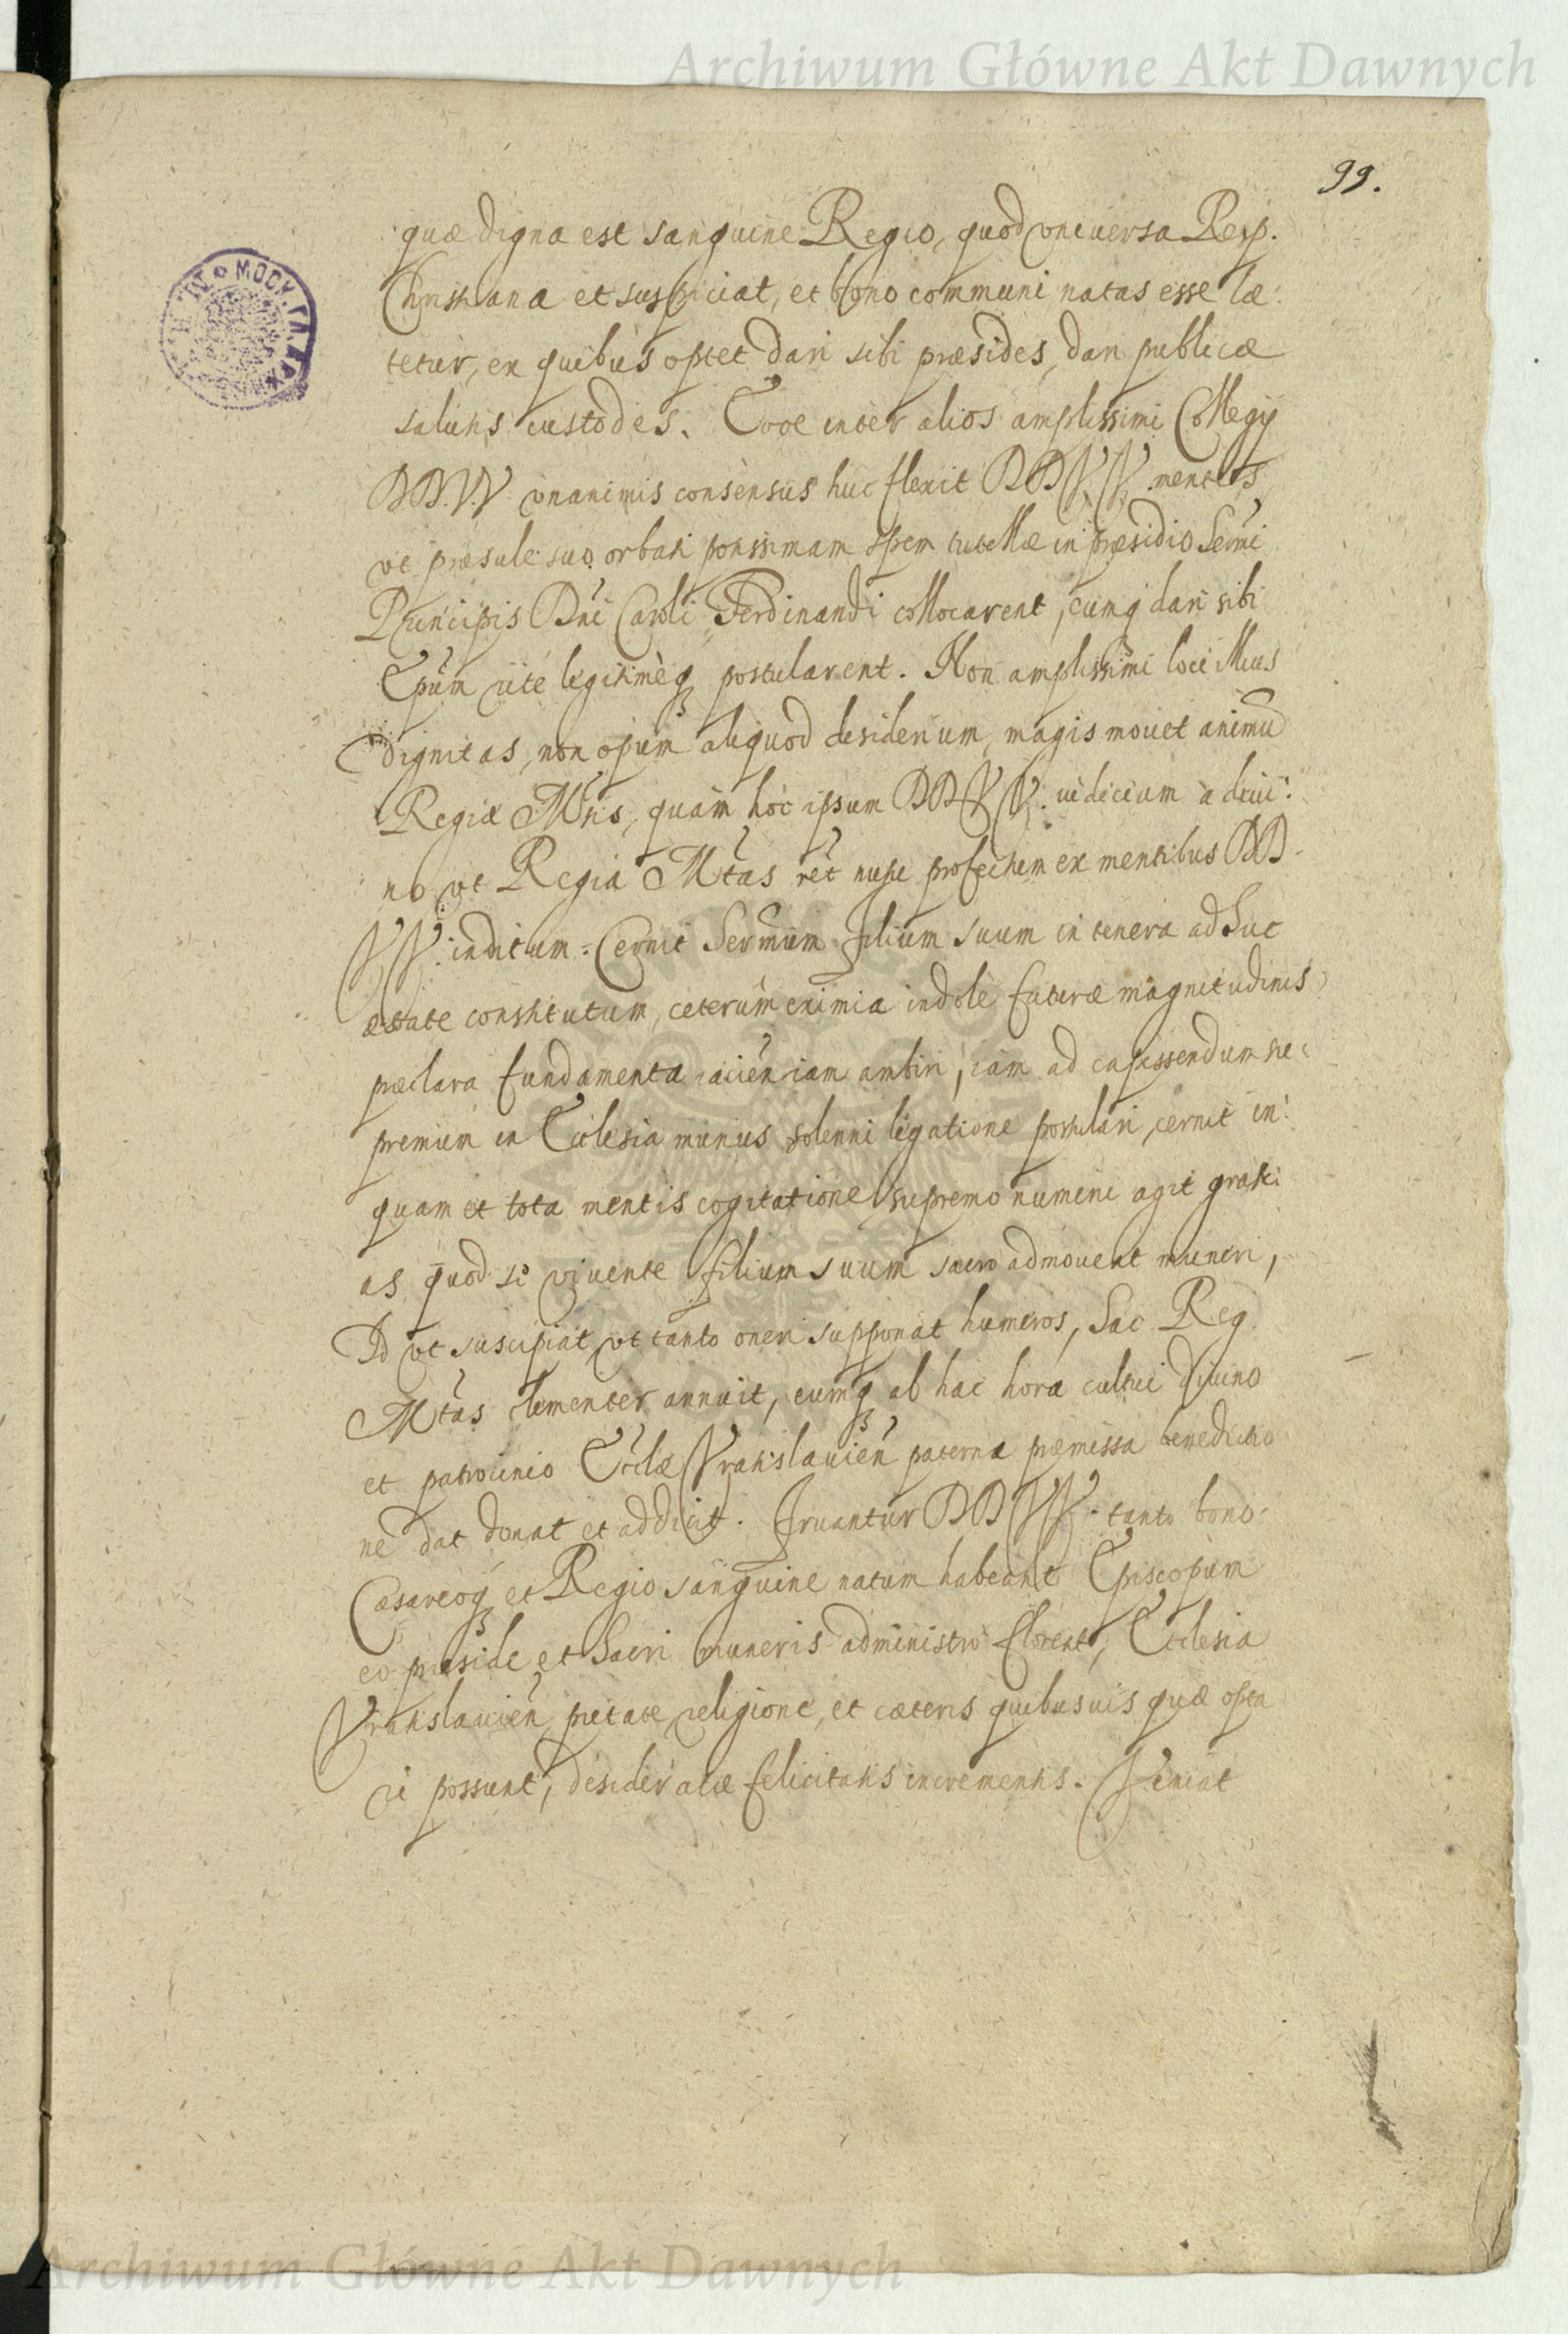 Archiwum Główne Akt Dawnych
99.
quæ digna est sanguine Regio, quod vniuersa Resp.
Christiana et suspiciat, et bono communi natas esse læ:
tetur, ex quibus optet dari sibi præsides, dari publicæ
salutis custodes. Quæ inter alios amplissimi Collegij
DD. VV. vnanimis consensus huc flexit DD VV. mentes,
vt præsule suo orbati potissimam spem tutellæ in præsidio Sermi
Principis Dni Caroli Ferdinandi collocarent, eumq dari sibi
Epum rite legitimèq postularent. Non amplissimi loci illius
dignitas, non opum aliquod desiderium, magis mouet animũ
Regiæ Mtis, quam hoc ipsum DD VV. iudicium a diui:
no vt Regia Mtas profectum ex mentibus DD.
VV. inditum. Cernit Sermum Filium suum in tenera adhuc
ætate constitutum, ceterum eximia indole futuræ magnitudinis
præclara fundamenta iacien iam ambiri, iam ad capessendum su:
premum in Ecclesia munus solenni legatione postulari, cernit in:
quam et tota mentis cogitatione supremo numini agit grati:
as quod se viuente filium suum sacro admoueat muneri,
Id vt suscipiat, vt tanto oneri supponat humeros, Sac Reg.
Mtas clementer annuit, eumq ab hac hora cultui diuino
et patrocinio Ecclæ Vratislauien paterna præmissa benedictio
ne dat donat et addicit. Fruantur DD VV. tanto bono.
Cæsareoq et Regio sanguine natum habeant Episcopum
eo præside et Sacri muneris administro floreat, Ecclesia
Vratislauien pietate religione, et cæteris quibusuis quæ opta
ri possunt, desideratæ felicitatis incrementis. Veniat
Archiwum Główne Akt Dawnych